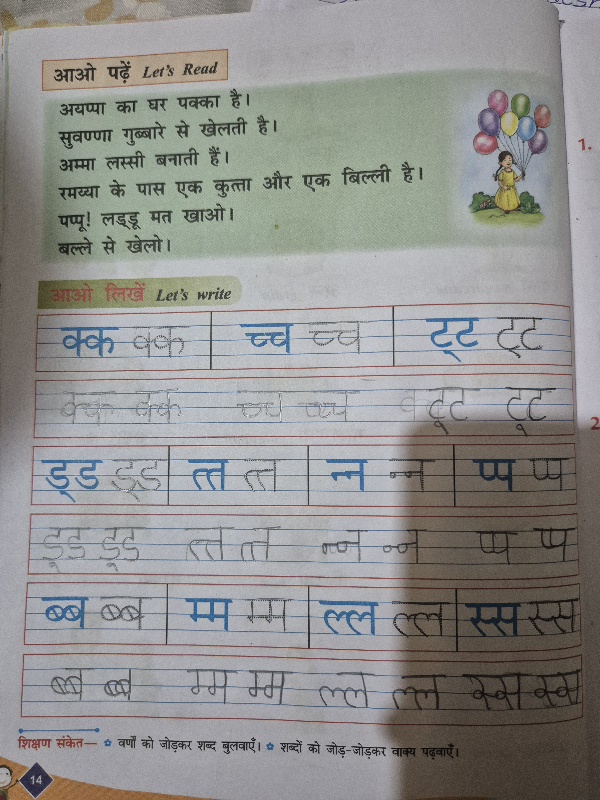 आओ पढ़ें Let's Read
अयप्पा का घर पक्का है।
सुवण्णा गुब्बारे से खेलती है।
अम्मा लस्सी बनाती हैं।
रमय्या के पास एक कुत्ता और एक बिल्ली है।
पप्पू! लड्डू मत खाओ।
बल्ले से खेलो।
1.
आओ लिखें Let's write
क्क क्क च्च च्च ट्ट ट्ट
क्क क्क च्च च्च ट्ट ट्ट
2
ड्ड ड्ड त्त त्त न्न न्न प्प प्प
ड्ड ड्ड त्त त्त न्न न्न प्प प्प
ब्ब ब्ब म्म म्म ल्ल ल्ल स्स स्स
ब्ब ब्ब म्म म्म ल्ल ल्ल स्स स्स
शिक्षण संकेत— ✿ वर्णों को जोड़कर शब्द बुलवाएँ। ✿ शब्दों को जोड़-जोड़कर वाक्य पढ़वाएँ।
14